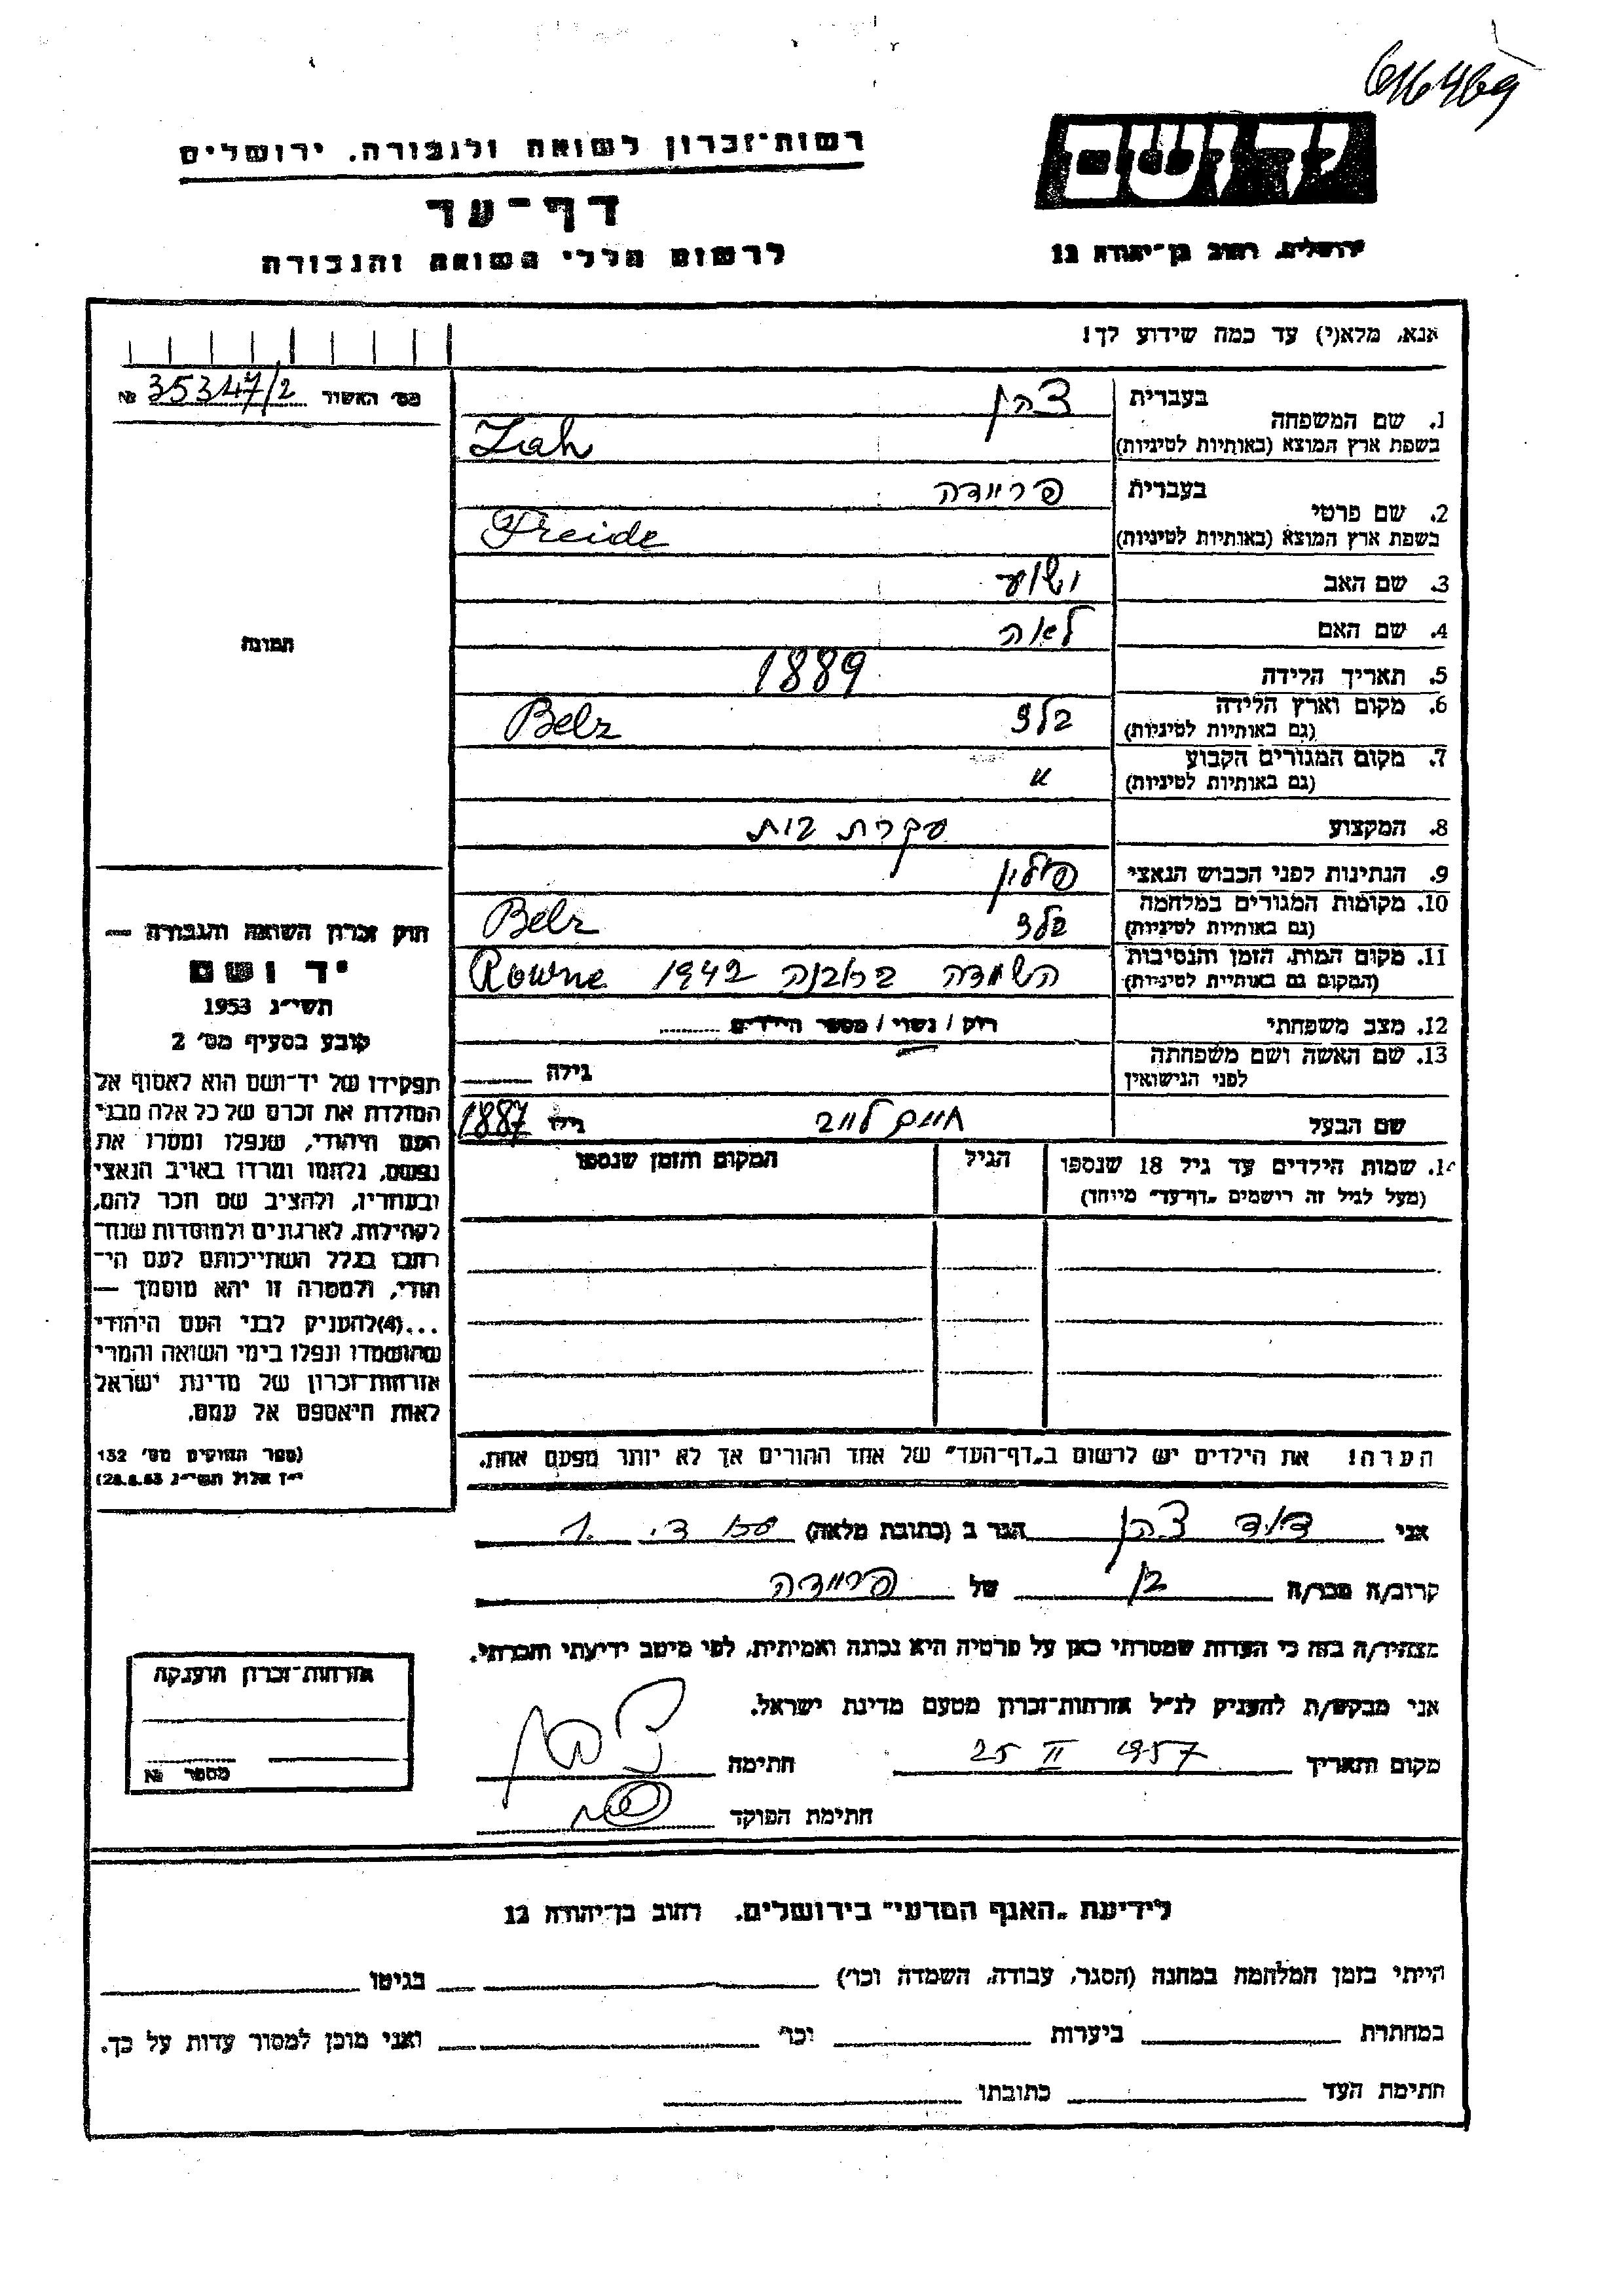 616469
יד ושם
רשות־זכרון לשואה ולגבורה, ירושלים
דף־עד
ירושלים, רחוב בן־יהודה 12
לרשום חללי השואה והגבורה
אנא, מלא(י) עד כמה שידוע לך!
מס׳ האשור 35347/2 №
בעברית
1. שם המשפחה
בשפת ארץ המוצא (באותיות לטיניות) Zah
בעברית פריידה
2. שם פרטי
בשפת ארץ המוצא (באותיות לטיניות) Freide
3. שם האב
4. שם האם לאה
5. תאריך הלידה 1889
6. מקום וארץ הלידה בלז Belz
(גם באותיות לטיניות)
7. מקום המגורים הקבוע "
(גם באותיות לטיניות)
8. המקצוע עקרת בית
9. הנתינות לפני הכבוש הנאצי פולין
10. מקומות המגורים במלחמה בלז Belz
(גם באותיות לטיניות)
11. מקום המות, הזמן והנסיבות השמדה ברובנה 1942 Rowne
(המקום גם באותיות לטיניות)
12. מצב משפחתי רווק / נשוי / מספר הילדים
13. שם האשה ושם משפחתה
לפני הנישואין גילה
שם הבעל חיים לייב גילו 1887
14. שמות הילדים עד גיל 18 שנספו הגיל המקום והזמן שנספו
(מעל לגיל זה רישמים „דף־עד" מיוחד)
הערה! את הילדים יש לרשום ב„דף־העד" של אחד ההורים אך לא יותר מפעם אחת.
תמונה
חוק זכרון השואה והגבורה —
יד ושם
תשי״ג 1953
קובע בסעיף מס׳ 2
תפקידו של יד־ושם הוא לאסוף אל
המולדת את זכרם של כל אלה מבני
העם היהודי, שנפלו ומסרו את
נפשם, נלחמו ומרדו באויב הנאצי
ובעוזריו, ולהציב שם וזכר להם,
לקהילות, לארגונים ולמוסדות שנח־
רבו בגלל השתייכותם לעם הי־
הודי, ולמטרה זו יהא מוסמך —
...(4)להעניק לבני העם היהודי
שהושמדו ונפלו בימי השואה והמרי
אזרחות־זכרון של מדינת ישראל
לאות היאספם אל עמם.
(ספר החוקים מס׳ 132
י״ז אלול תשי״ג 28.8.53)
אני דוד הגר ב (כתובת מלאה)
קרוב/ה מכר/ה בן של פריידה
מצהיר/ה בזה כי העדות שמסרתי כאן על פרטיה היא נכונה ואמיתית, לפי מיטב ידיעתי והכרתי.
אני מבקש/ת להעניק לנ״ל אזרחות־זכרון מטעם מדינת ישראל.
מקום ותאריך 25 II 1957 חתימה
חתימת הפוקד
אזרחות־זכרון הוענקה
מספר №
לידיעת „האגף המדעי" בירושלים. רחוב בן־יהודה 12
הייתי בזמן המלחמה במחנה (הסגר, עבודה, השמדה וכו׳) בגיטו
במחתרת ביערות וכו׳ ואני מוכן למסור עדות על כך.
חתימת העד כתובתו